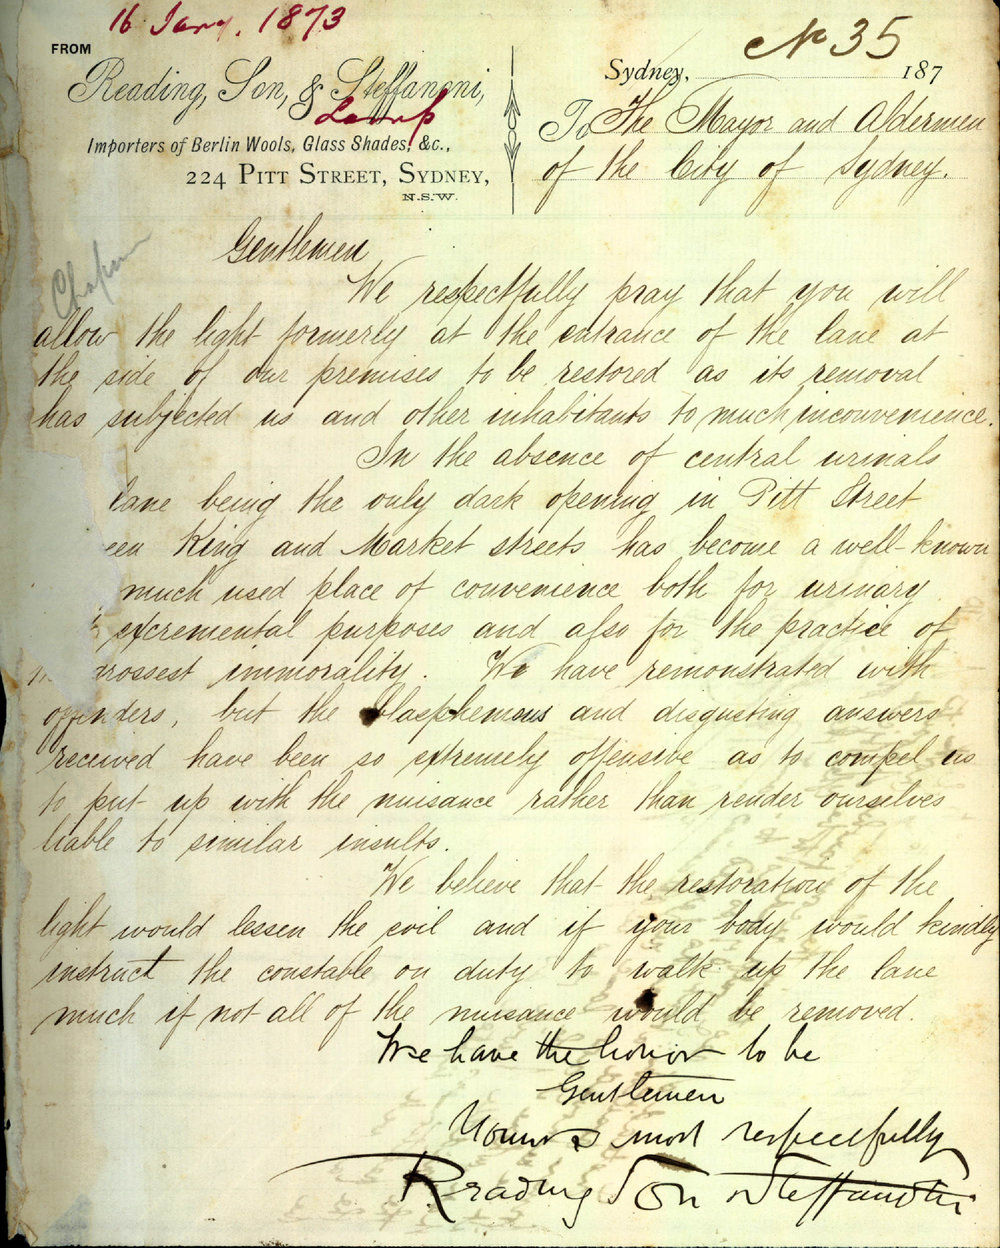 16 Jany. 1873
No 35
FROM
Reading, Son, & Steffanoni,
Lamp
Importers of Berlin Wools, Glass Shades, &c.,
224 PITT STREET, SYDNEY,
N.S.W.
Sydney, 187
To The Mayor and Aldermen
of the City of Sydney.
Gentlemen
We respectfully pray that you will
allow the light formerly at the entrance of the lane at
the side of our premises to be restored as its removal
has subjected us and other inhabitants to much inconvenience.
In the absence of central urinals
lane being the only dark opening in Pitt Street
een King and Market streets has become a well-known
much used place of convenience both for urinary
excremental purposes and also for the practice of
rossest immorality. We have remonstrated with
offenders, but the blasphemous and disgusting answers
received have been so extremely offensive as to compel us
to put up with the nuisance rather than render ourselves
liable to similar insults.
We believe that the restoration of the
light would lessen the evil and if your body would kindly
instruct the constable on duty to walk up the lane
much if not all of the nuisance would be removed.
We have the honor to be
Gentlemen
Yours most respectfully
Reading Son & Steffanoni